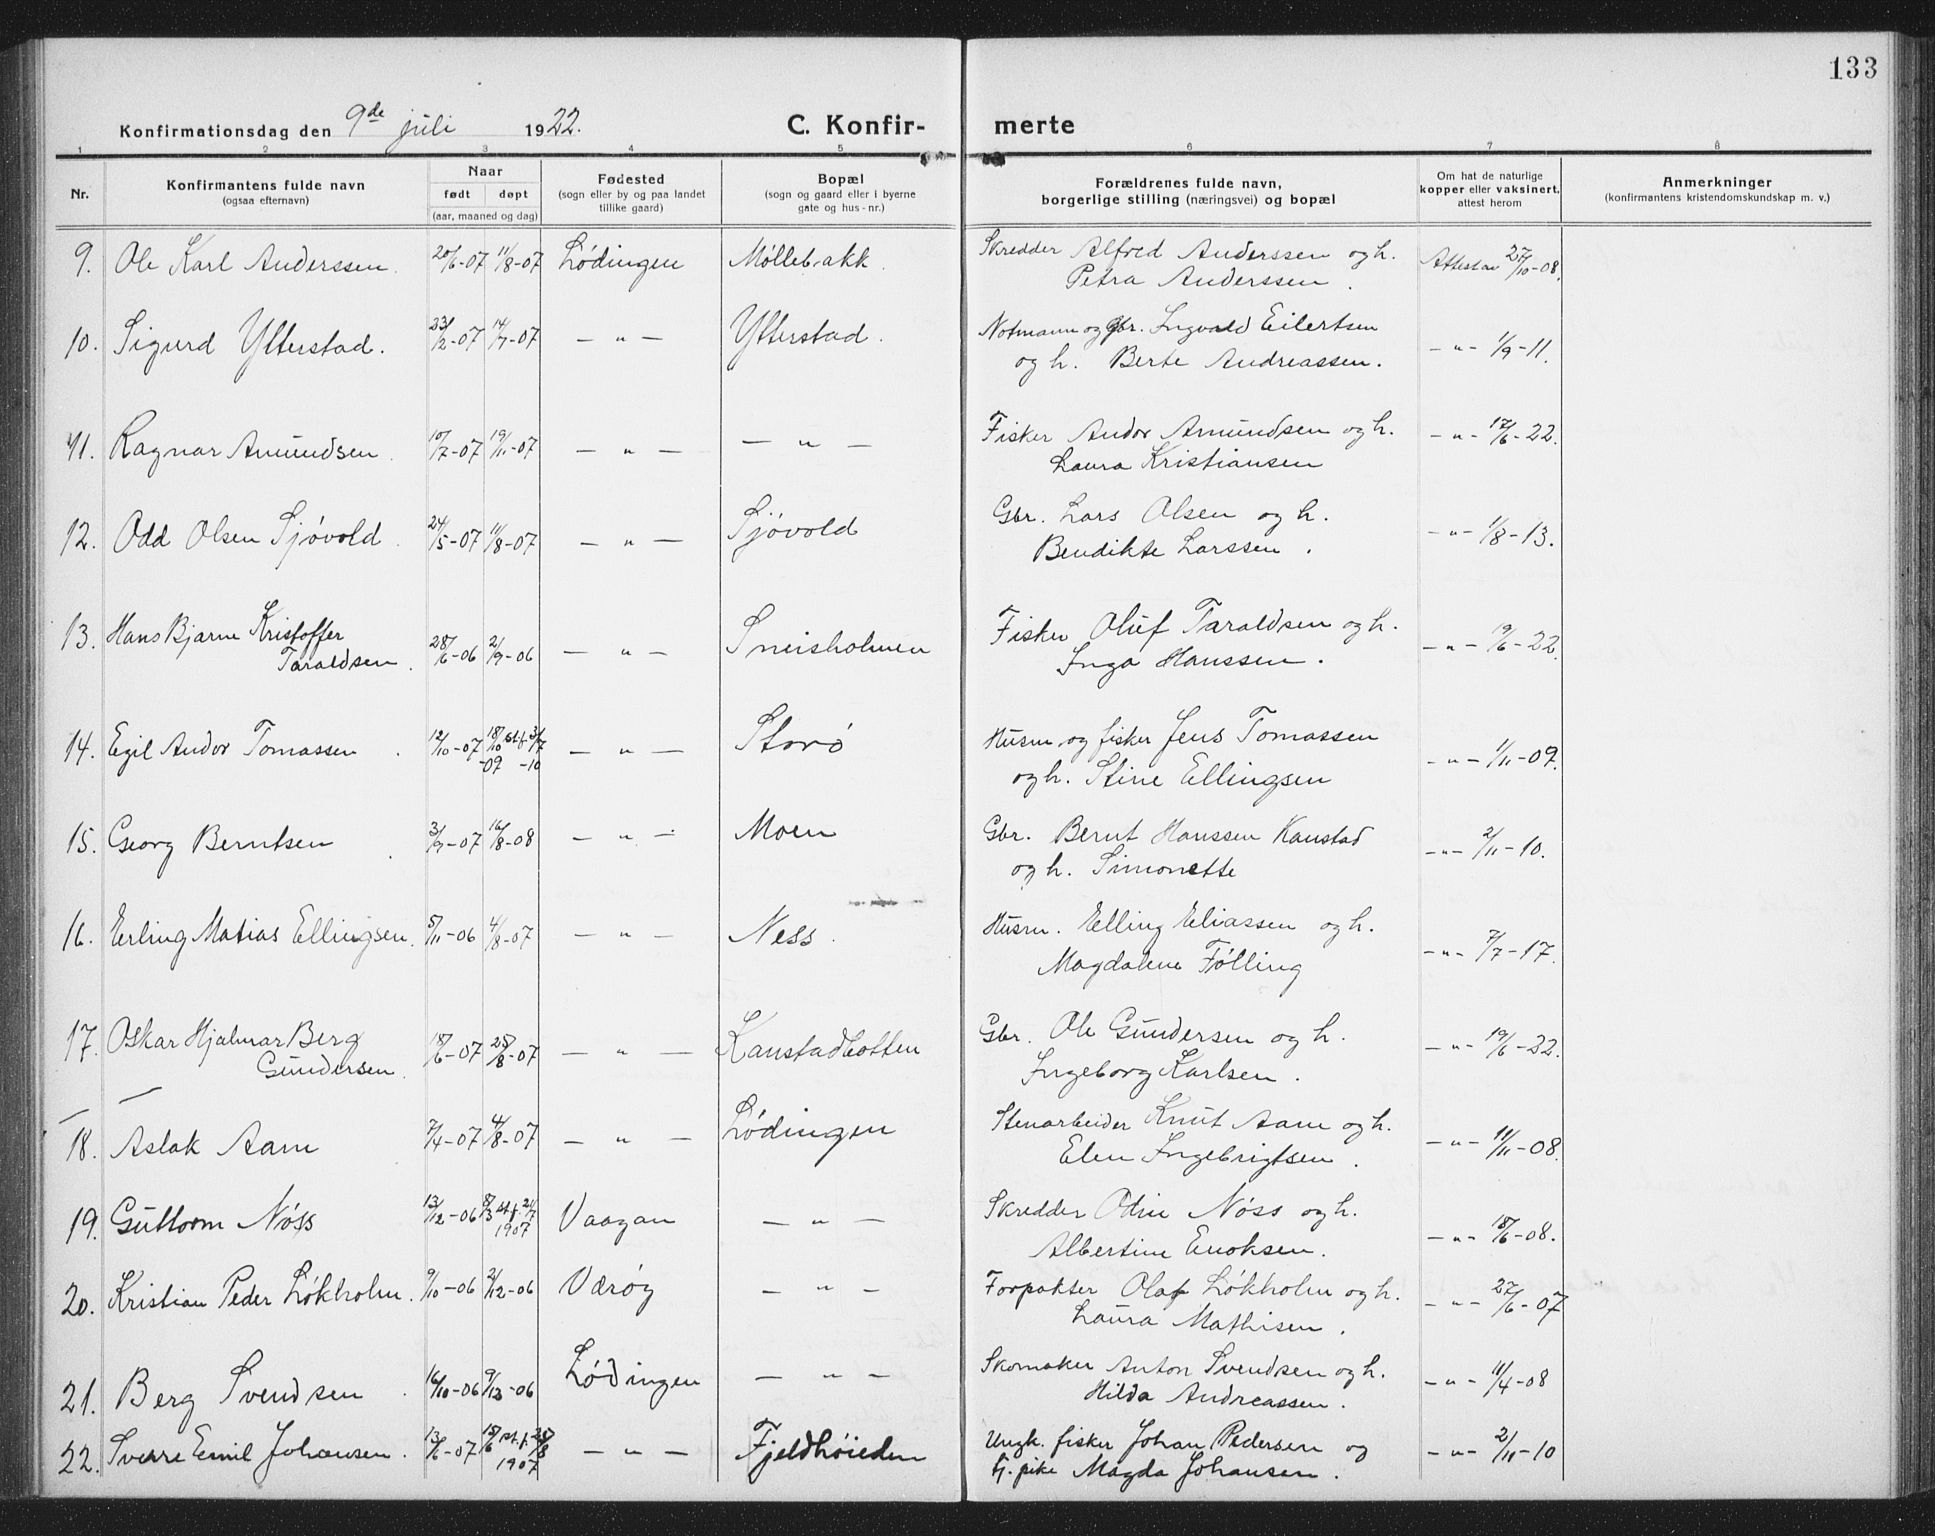 133
Konfirmationsdag den 9de juli 1922. C. Konfir- merte
1 2 3 4 5 6 7 8
Nr. Konfirmantens fulde navn (ogsaa efternavn) Naar født døpt (aar, maaned og dag) Fødested (sogn eller by og paa landet tillike gaard) Bopæl (sogn og gaard eller i byerne gate og hus-nr.) Forældrenes fulde navn, borgerlige stilling (næringsvei) og bopæl Om hat de naturlige kopper eller vaksinert, attest herom Anmerkninger (konfirmantens kristendomskundskap m. v.)
9. Ole Karl Anderssen. 20/6-07 11/8-07 Lødingen Møllebakk. Skredder Alfred Anderssen og h. Attestav 27/10-08.
Petra Anderssen.
10. Sigurd Ytterstad. 23/2-07 14/7-07 – " – Ytterstad. Notmann og gbr. Ingvald Eilertsen
og h. Berte Andreassen. – " – 1/9-11.
11. Ragnar Amundsen 10/7-07 19/11-07 – " – – " – Fisker Andor Amundsen og h. – " – 17/6-22.
Laura Kristiansen
12. Odd Olsen Sjøvold. 24/5-07 11/8-07 – " – Sjøvold Gbr. Lars Olsen og h. – " – 1/8-13.
Bendikte Larssen.
13. Hans Bjarne Kristoffer
Taraldsen. 28/6-06 2/9-06 – " – Sneisholmen Fisker Oluf Taraldsen og h. – " – 9/6-22.
Inga Hanssen.
14. Egil Andor Tomassen. 12/10-07 18/10 st.f. 3/7 – " – Storø Husm. og fisker Jens Tomassen
-09 -10 og h. Stine Ellingsen – " – 1/11-09.
15. Georg Berntsen. 3/9-07 16/8-08 – " – Moen Gbr. Bernt Hanssen Kanstad
og h. Simonette – " – 2/11-10.
16. Erling Matias Ellingsen. 5/11-06 4/8-07 – " – Ness. Husm. Elling Eliassen og h.
Magdalene Følling – " – 7/7-17.
17. Oskar Hjalmar Berg
Gundersen. 18/6-07 25/8-07 – " – Kanstadbotten Gbr. Ole Gundersen og h. – " – 19/6-22.
Ingeborg Karlsen.
18. Aslak Aam 7/4-07 4/8-07 – " – Lødingen Stenarbeider Knut Aam og h.
Elen Ingebrigtsen. – " – 11/11-08.
19. Guttorm Nøss 13/12-06 8/3 st.f. 21/7 Vaagan – " – Skredder Odin Nøss og h.
1907 Albertine Enoksen. – " – 18/6-08.
20. Kristian Peder Løkholm. 9/10-06 2/12-06 Værøy – " – Forpakter Olaf Løkholm og h. – " – 27/6-07
Laura Mathisen.
21. Berg Svendsen. 16/10-06 9/12-06 Lødingen – " – Skomaker Anton Svendsen og h. – " – 11/4-08
Hilda Andreassen.
22. Sverre Emil Johansen. 13/6-07 15/6 st.f. 25/8 – " – Fjeldhøieden Ungk. fisker Johan Pedersen og – " – 2/11-10
1907 tj. pike Magda Johansen.